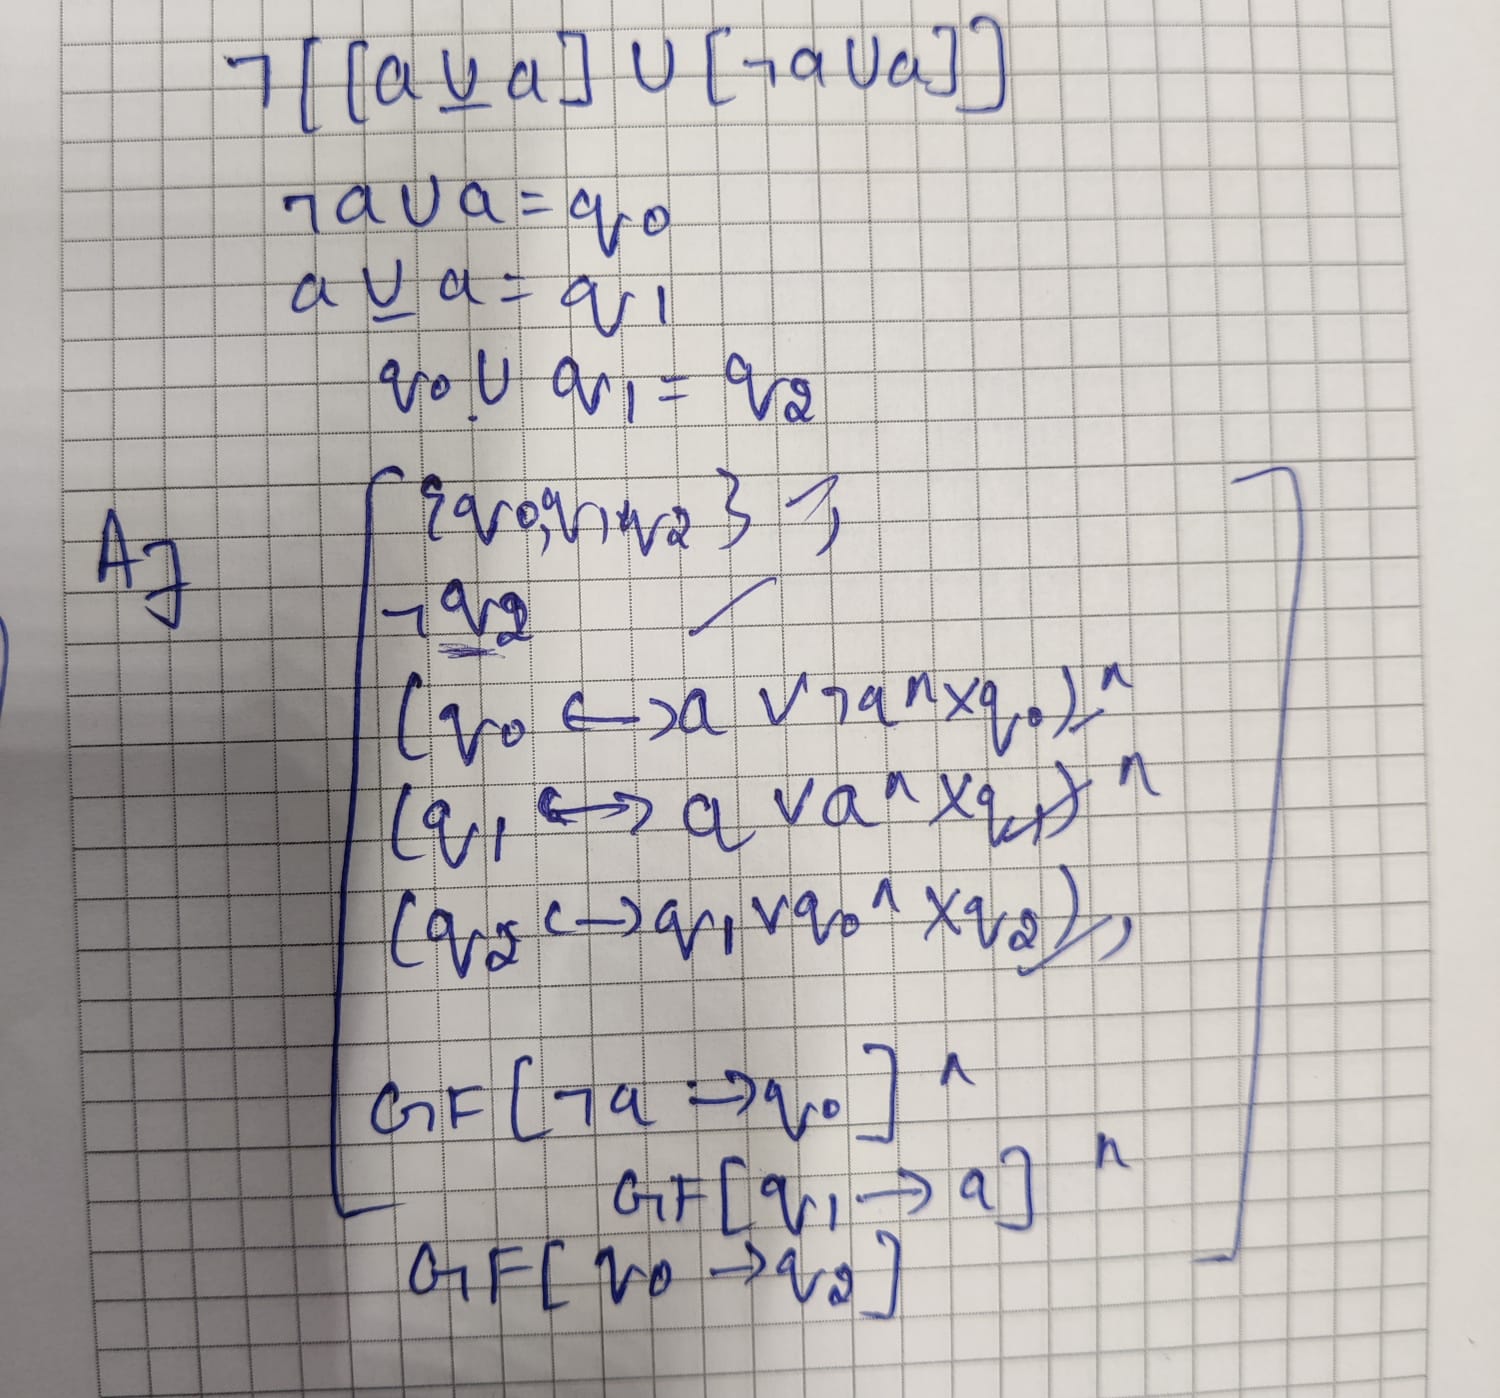 ¬[[a U̲ a] U [¬a U a]]
¬a U a = q0
a U̲ a = q1
q0 U q1 = q2
A∃
{q0, q1, q2},
¬q2
(q0 ↔ a ∨ ¬a ∧ Xq0) ∧
(q1 ↔ a ∨ a ∧ Xq1) ∧
(q2 ↔ q1 ∨ q0 ∧ Xq2),
GF[¬a → q0] ∧
GF[q1 → a] ∧
GF[q0 → q2]